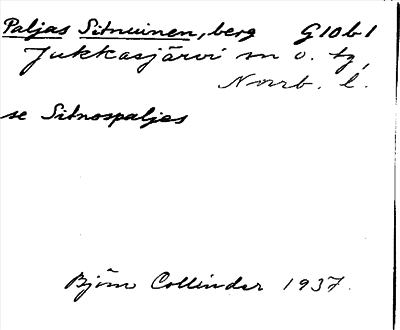 Paljas Sitnuinen, berg G10b1
Jukkasjärvi sn o. tg,
Norrb. l.
se Sitnospaljes
Björn Collinder 1937.